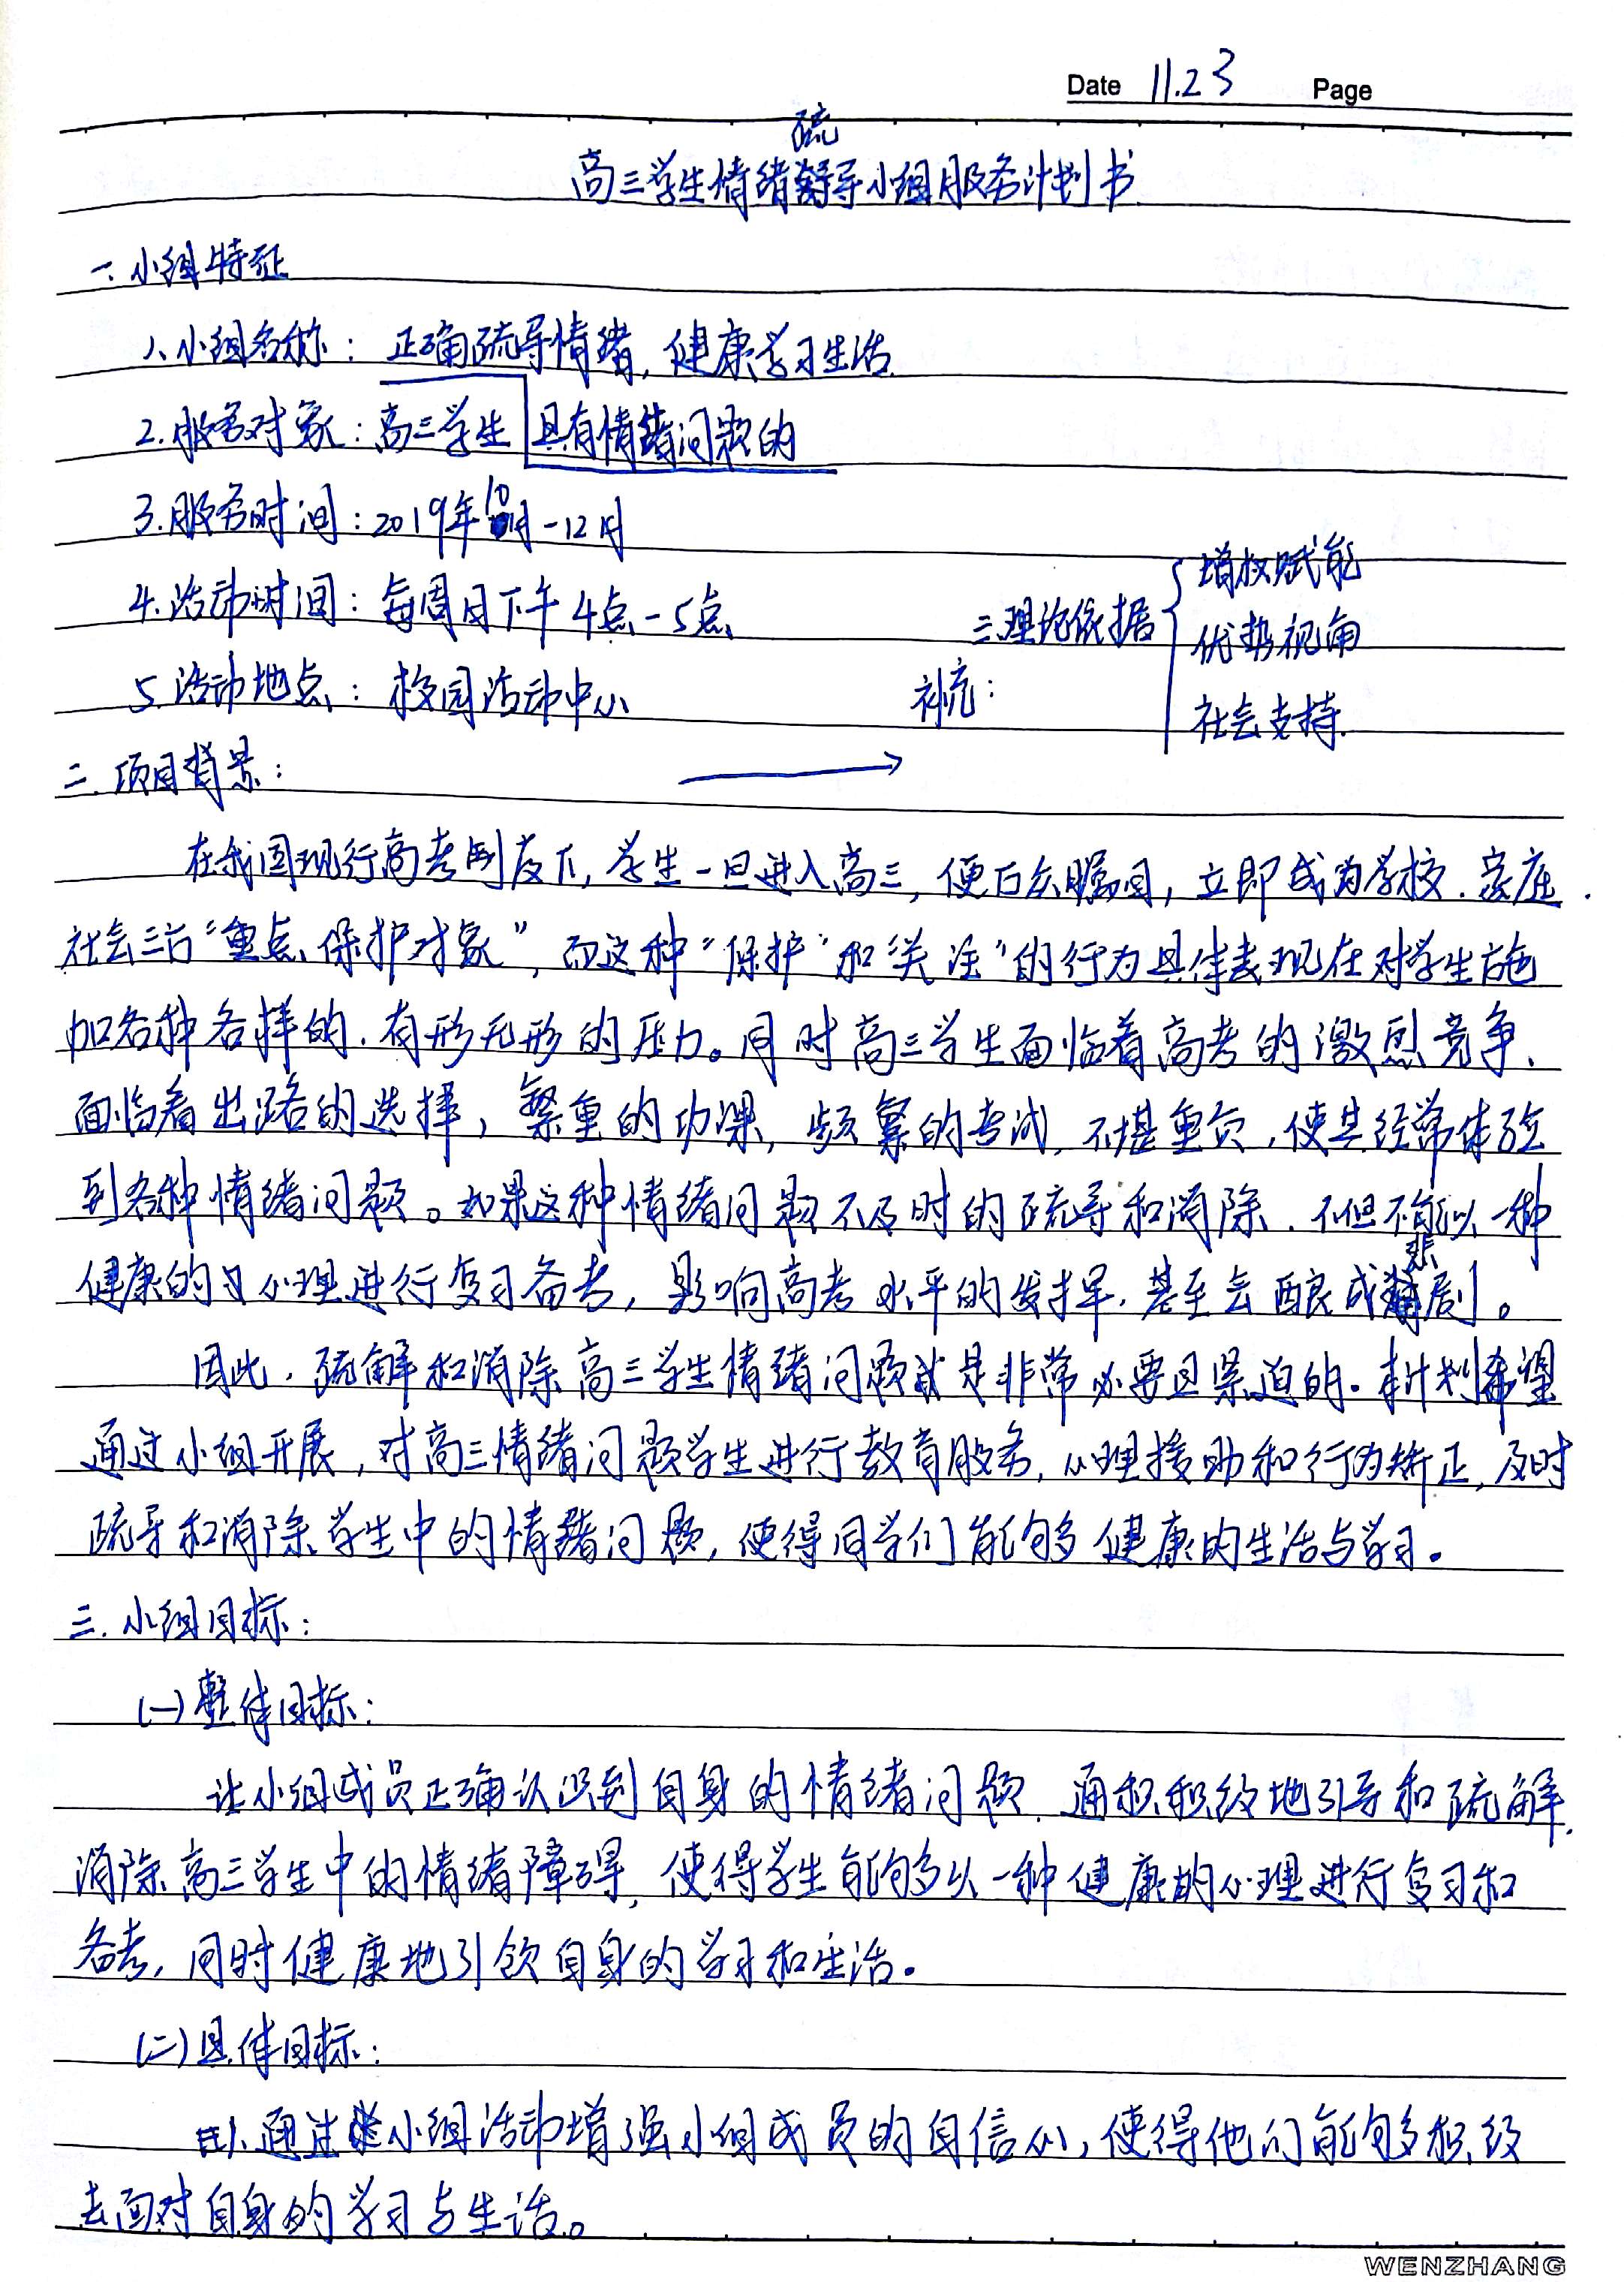 Date 11.23 Page
高三学生情绪疏导小组服务计划书
一.小组特征
1.小组名称：正确疏导情绪，健康学习生活
2.服务对象：高三学生 具有情绪问题的
3.服务时间：2019年10月-12月
4.活动时间：每周日下午4点-5点
5.活动地点：校园活动中心
补充：
三.理论依据
增权赋能
优势视角
社会支持
二.项目背景：
在我国现行高考制度下，学生一旦进入高三，便百众瞩目，立即成为学校、家庭、
社会三方“重点保护对象”，而这种“保护”和“关注”的行为具体表现在对学生施
加各种各样的、有形无形的压力。同时高三学生面临着高考的激烈竞争、
面临着出路的选择，繁重的功课，频繁的考试，不堪重负，使其经常体验
到各种情绪问题。如果这种情绪问题不及时的疏导和消除，不但不能以一种
健康的心理进行复习备考，影响高考水平的发挥，甚至会酿成悲剧。
因此，疏解和消除高三学生情绪问题就是非常必要且紧迫的。本计划希望
通过小组开展，对高三情绪问题学生进行教育服务，心理援助和行为矫正，及时
疏导和消除学生中的情绪问题，使得同学们能够多健康的生活与学习。
三.小组目标：
(一)整体目标：
让小组成员正确认识到自身的情绪问题，通积积极地引导和疏解，
消除高三学生中的情绪障碍，使得学生能够以一种健康的心理进行复习和
备考，同时健康地引领自身的学习和生活。
(二)具体目标：
1.通过小组活动增强小组成员的自信心，使得他们能够积极
去面对自身的学习与生活。
WENZHANG